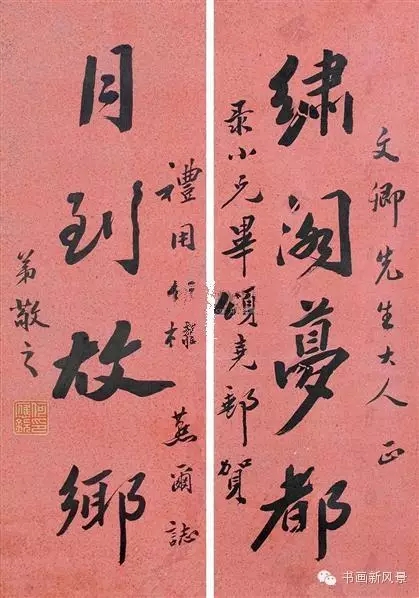 文卿先生大人正
繡閣夢都
录小兄畢頌堯郵賀
月到故鄉
禮用 燕爾誌
弟敬之
书画新风景